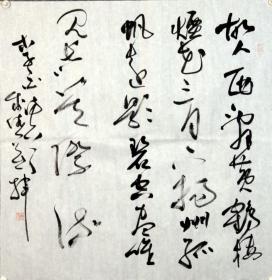 故人西辞黄鹤楼
烟花三月下扬州孤
帆远影碧空尽唯
见长江天际流
李白诗